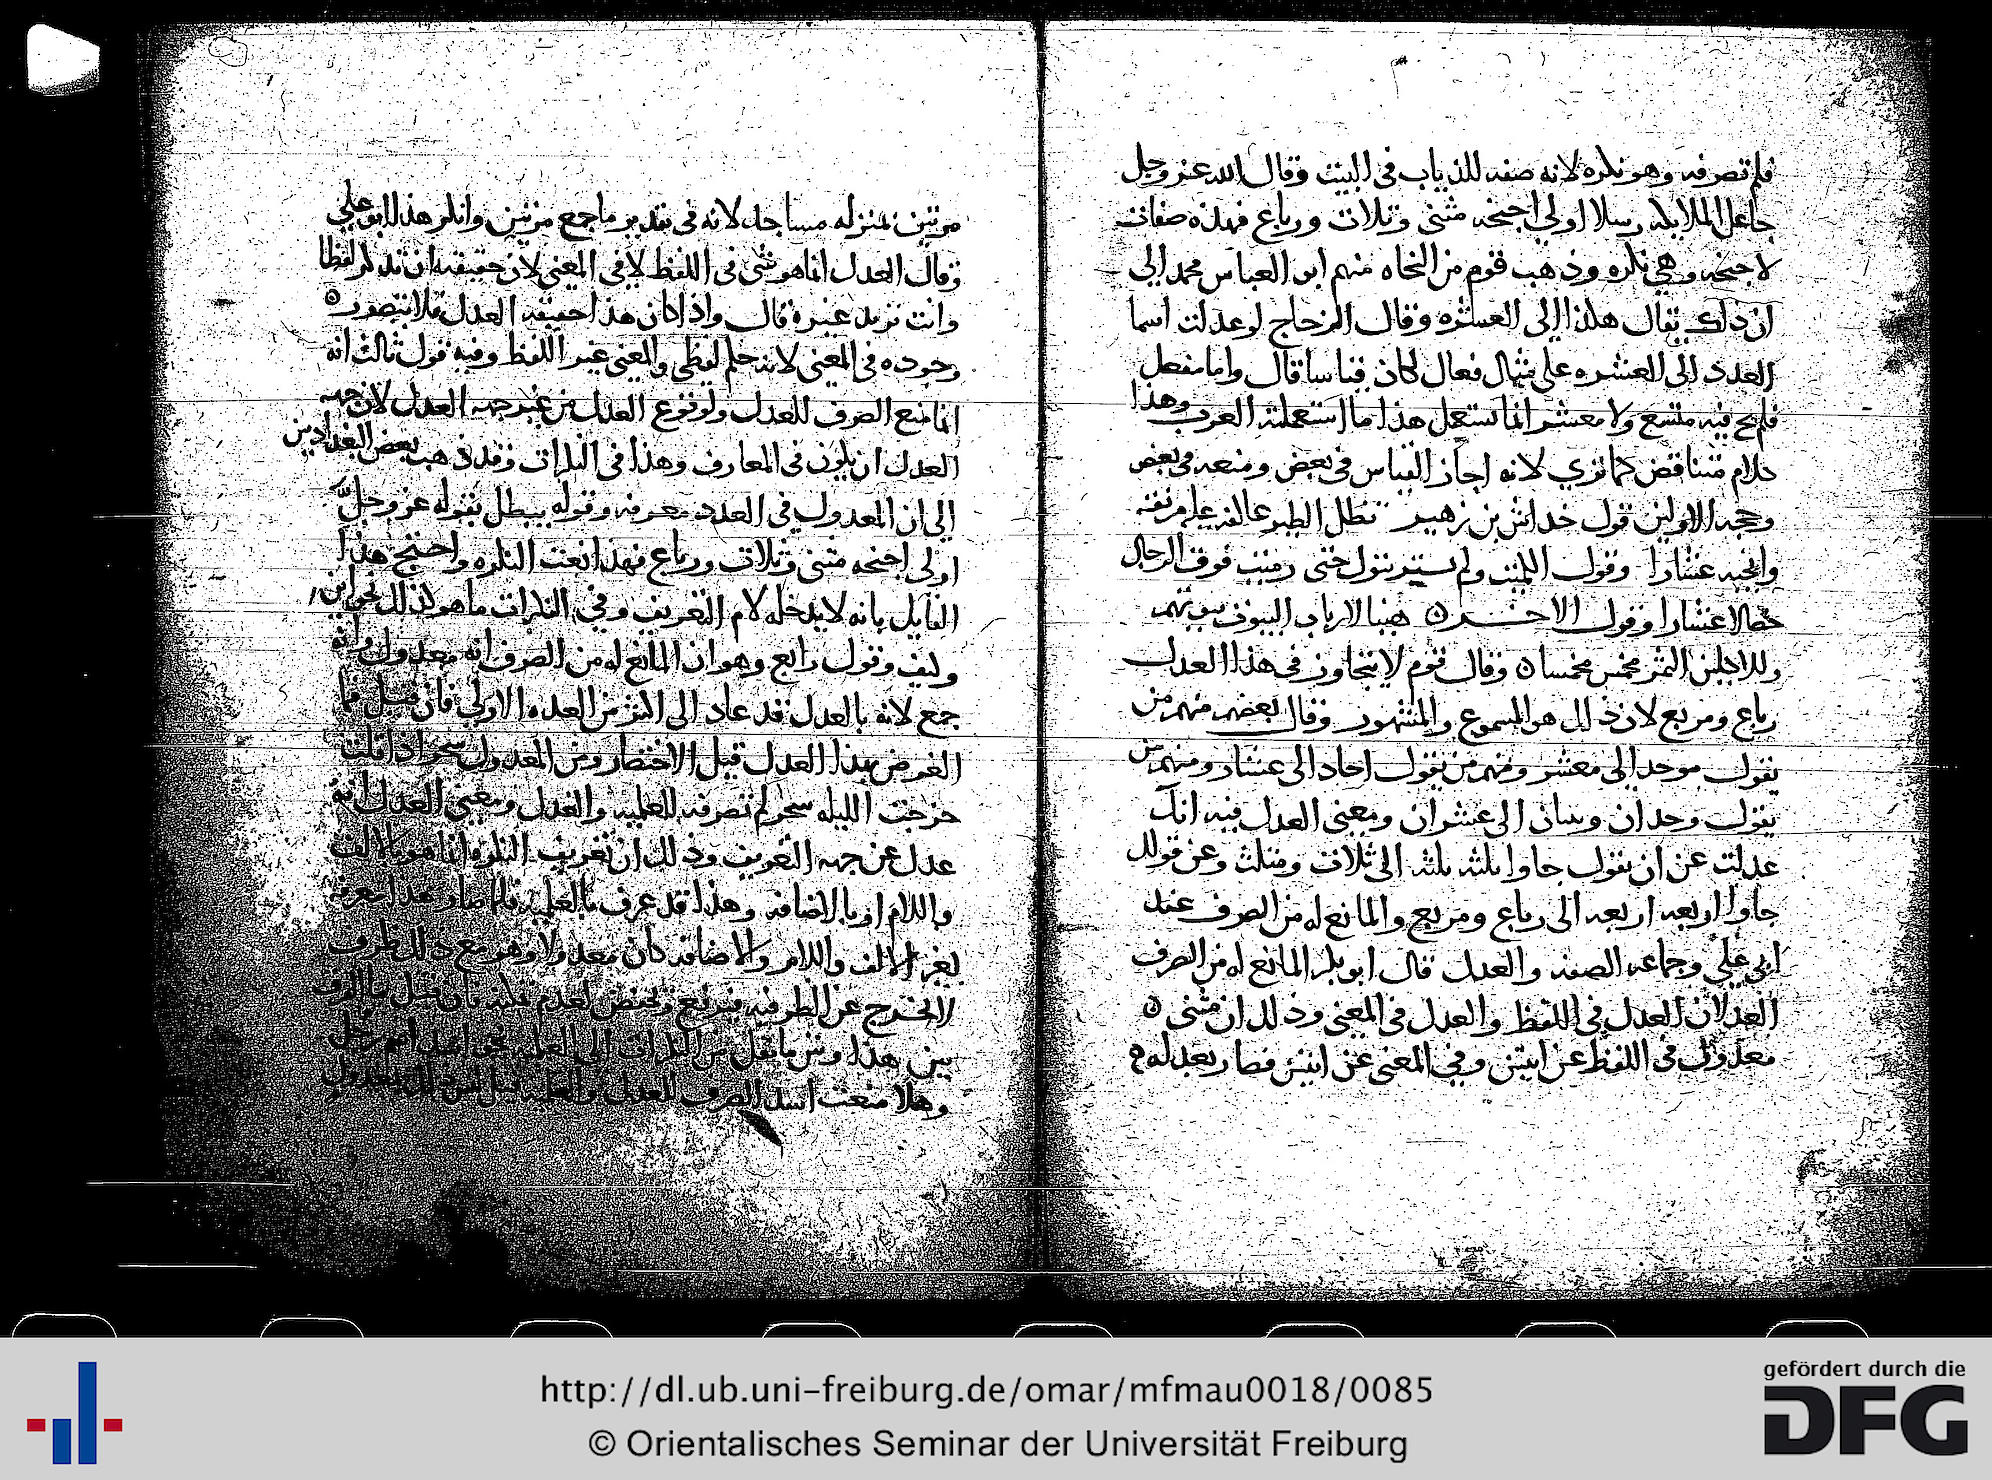 فلم تصرفه وهو نكره لانه صفه للذياب في البيت وقال الله عز وجل
جاعل الملايكه رسلا اولي اجنحه مثنى وثلاث ورباع فهذه صفات
لاجنحه وهي نكره وذهب قوم من النحاه منهم ابو العباس محمد الى
ان ذلك يقال هكذا الى العشره وقال الزجاج لو عدلت اسما
العدد الى العشره على مثال فعال لكان قياسا قال واما مفعل
فلم يج فيه متسع ولا معشر انما تستعمل هذا ما استعملته العرب وهذا
كلام متناقض كما ترى لانه اجاز القياس في بعض ومنعه في بعض
وحجه الاولين قول خداش بن زهير تظل الطير عاكفه عليهم
عشارا وقول الكميت ولم يستريثوك حتى رميت فوق الرجال
خصالا عشارا وقول الاخر ه هنيا لارباب البيوت بيوتهم
وللاكلين التمر مخمس مخمسا ه وقال قوم لا يتجاوز في هذا العدل
رباع ومربع لان ذلك هو المسموع والمشهور وقال بعضهم منهم من
يقول موحد الى معشر ومنهم من يقول احاد الى عشار ومنهم من
يقول وحدان وثنيان الى عشران ومعنى العدل فيه انك
عدلت عن ان تقول جاوا ثلثه ثلثه الى ثلاث ومثلث وعن قولك
جاوا اربعه اربعه الى رباع ومربع والمانع له من الصرف عند
ابي علي وجماعه الصفه والعدل قال ابو بكر المانع له من الصرف
العدلان العدل في اللفظ والعدل في المعنى وذلك ان مثنى ه
معدول في اللفظ عن اثنين وفي المعنى عن اثنين اثنين فصار بعدله
مرتين بمنزله مساجد لانه في تقدير ما جمع مرتين وانكر هذا ابو علي
وقال العدل انما هو شي في اللفظ لا في المعنى لان حقيقته ان تذكر لفظا
وانت تريد غيره قال واذا كان هذا حقيقه العدل فلا يتصور ه
وجوده في المعنى لانه حكم لفظي والمعنى غير اللفظ وفيه قول ثالث انه
انما منع الصرف للعدل ولوقوع العدل من غير جهه العدل لان جهه
العدل ان يكون في المعارف وهذا في النكرات وقد ذهب بعض البغداديين
الى ان المعدول في العدد معرفه وقوله يبطل بقوله عز وجل
اولي اجنحه مثنى وثلاث ورباع فهذا نعت النكره واحتج هذا
القايل بانه لا يدخله لام التعريف وفي النكرات ما هو كذلك نحو اين
وكيف وقول رابع وهو ان المانع له من الصرف انه معدول وانه
جمع لانه بالعدل قد عاد الى اكثر من العده الاولى فان قيل فما
الغرض بهذا العدل قيل الاختصار ومن المعدول سحر اذا قلت
خرجت الليله سحر لم تصرفه للعلميه والعدل ومعنى العدل انه
عدل عن جهه التعريف وذلك ان تعريف النكره انما هو بالالف
واللام او بالاضافه وهذا قد عرف بالعلميه فلما صار هذا معرفه
بغير الالف واللام والاضافه كان معدولا وهو مع ذلك ظرف
لا يخرج عن الظرفيه فيرفع ويخفض لعدم تمكنه فان قيل ما الفرق
بين هذا وبين ما نقل من النكرات الى العلميه نحو اسد اسم رجل
وهلا منعت اسد الصرف للعدل والعلميه قيل ليس ذلك بعدول
http://dl.ub.uni-freiburg.de/omar/mfmau0018/0085
© Orientalisches Seminar der Universität Freiburg
gefördert durch die
DFG